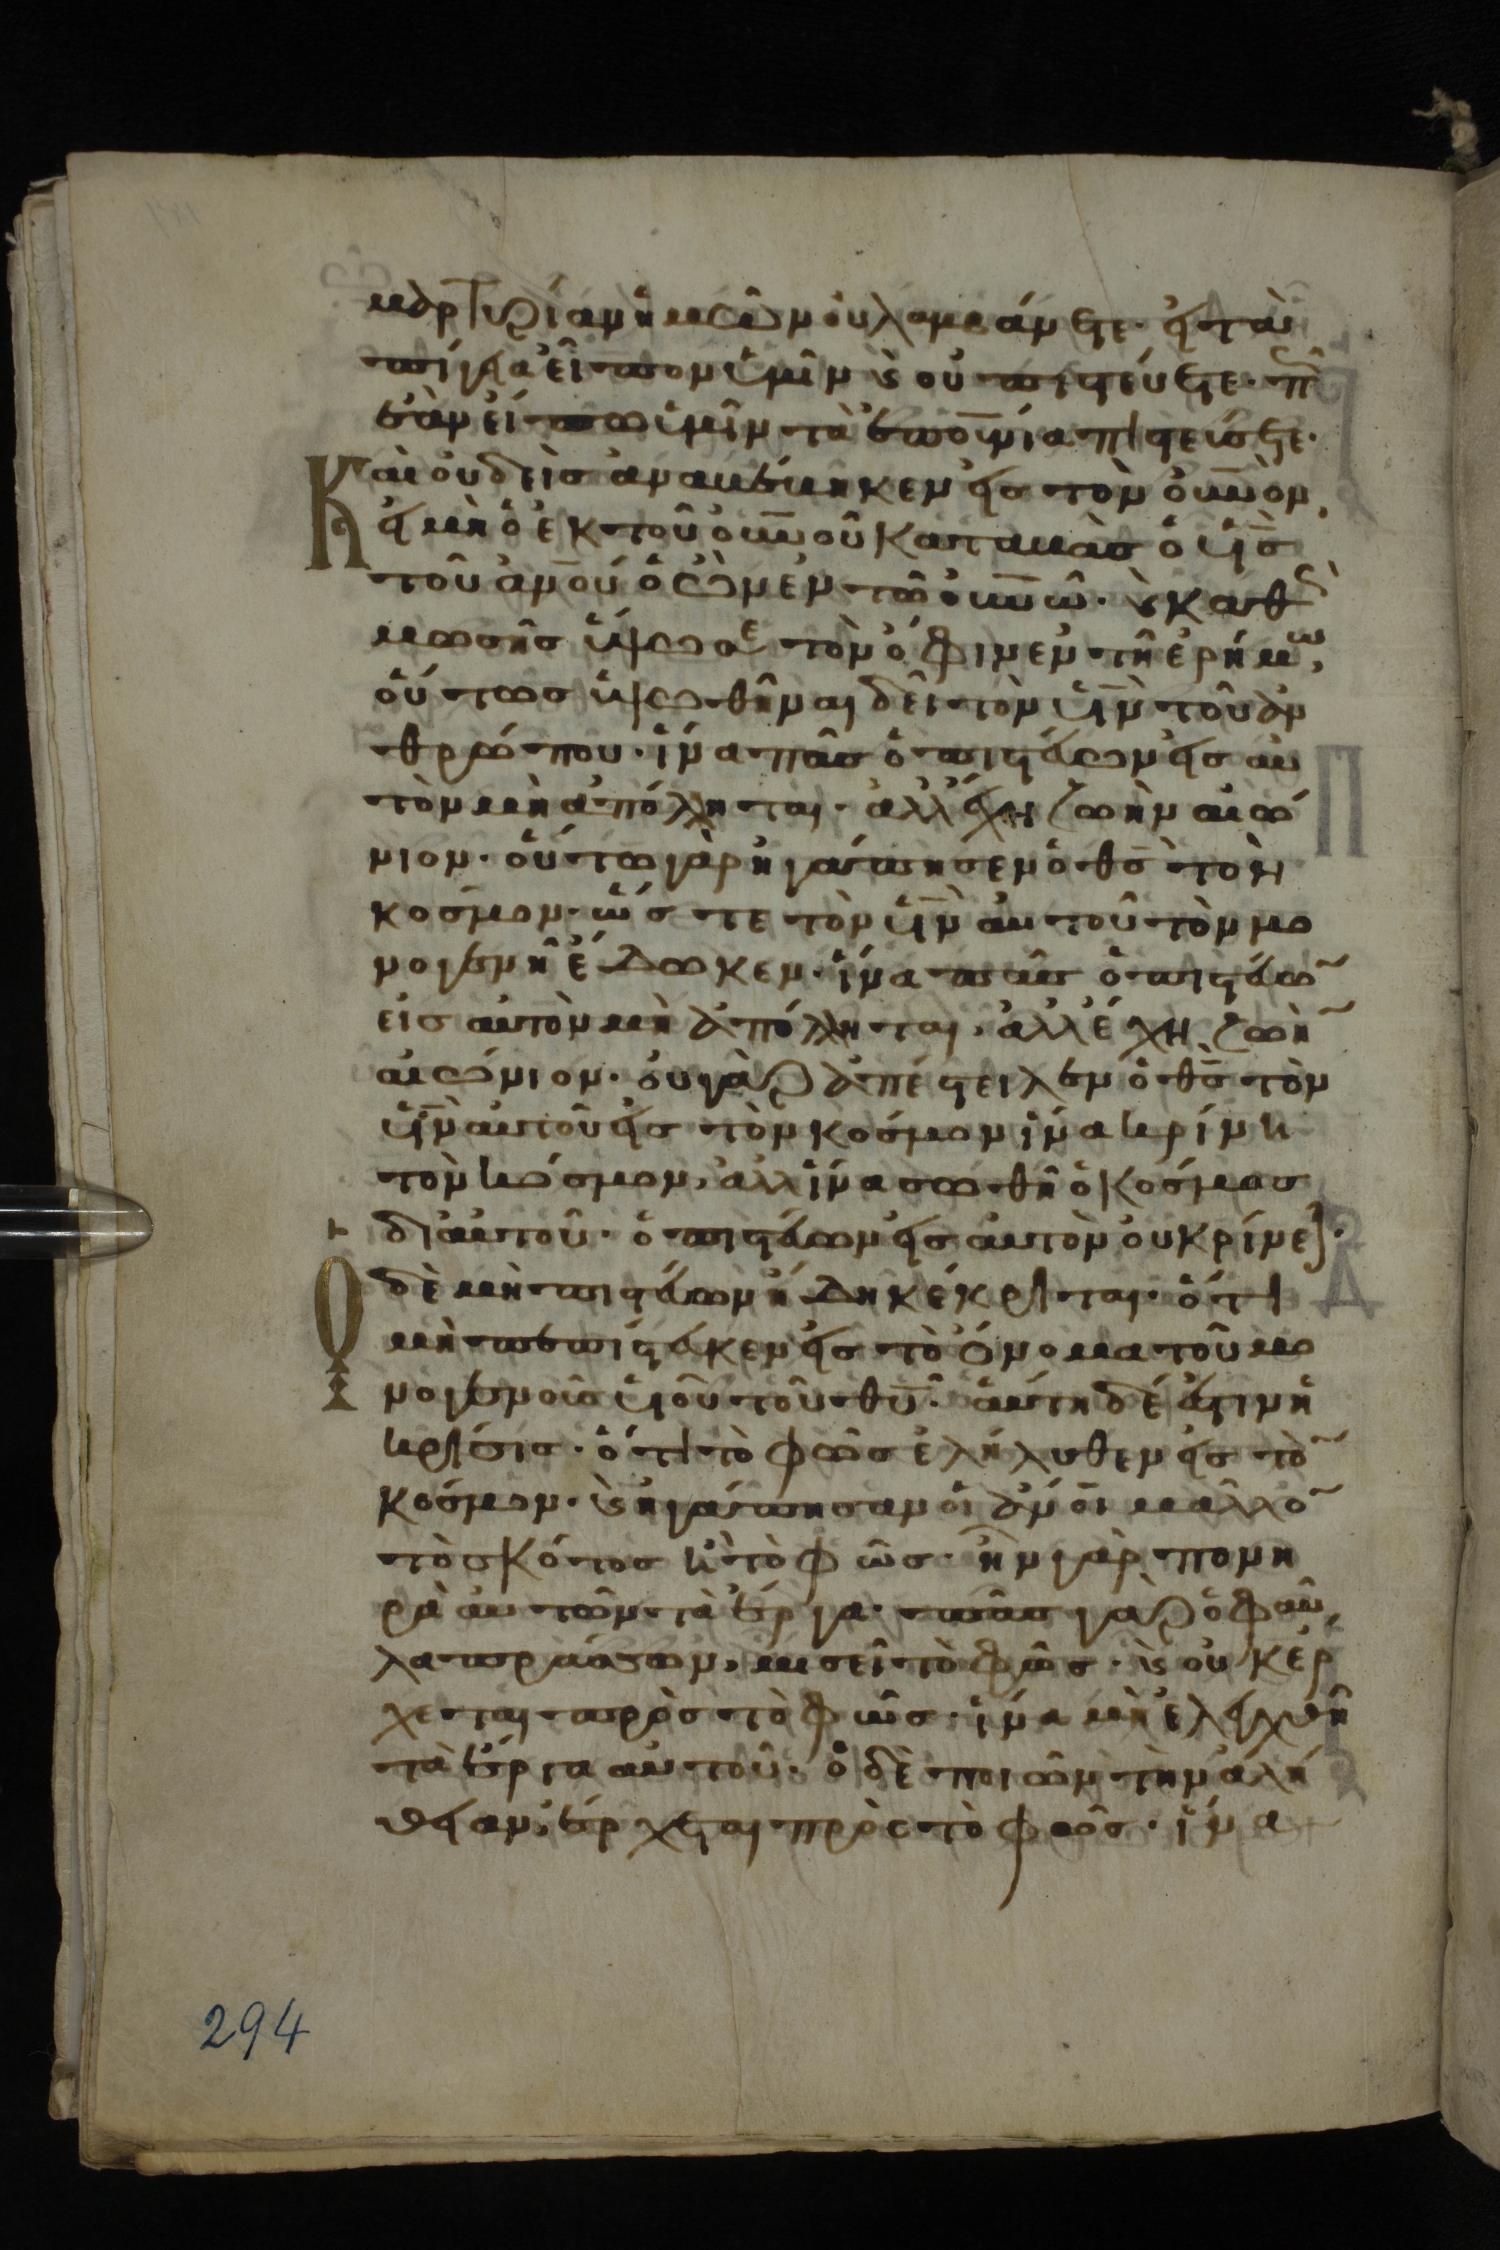 μαρτυρίαν ἡμῶν οὐ λαμβάνετε· εἰ τὰ ἐ
πίγεια εἶπον ὑμῖν κ οὐ πιστεύετε· πῶ
ἐὰν εἴπω ὑμῖν τὰ ἐπουνια πιστεύσετε·
Καὶ οὐδεὶς ἀναβέβηκεν εἰς τὸν οὐνον,
εἰ μὴ ὁ ἐκ τοῦ οὐνοῦ καταβὰς ὁ υἱς
τοῦ ἀνου ὁ ὢν ἐν τῶ οὐνῶ· κ καθ
μωσῆς ὕψωσε τὸν ὄφιν ἐν τῆ ἐρήμω,
οὕτως ὑψωθῆναι δεῖ τὸν υἱν τοῦ ἀν
θρώπου· ἵνα πᾶς ὁ πιστεύων εἰς αὐ
τὸν μὴ ἀπόληται· ἀλλ' ἔχη ζωὴν αἰώ
νιον· οὕτω γὰρ ἠγάπησεν ὁ θς τὸν
κοσμον· ὥστε τὸν υἱν αὐτοῦ τὸν μο
νογενῆ ἔδωκεν· ἵνα πᾶς ὁ πιστεύω
εἰς αὐτὸν μὴ ἀπόληται, ἀλλ' ἔχη ζωὴ
αἰώνιον· οὐ γὰρ ἀπέστειλεν ὁ θς τὸν
υἱν αὐτοῦ εἰς τὸν κόσμον ἵνα κρίνη
τὸν κόσμον, ἀλλ' ἵνα σωθῆ ὁ κόσμος
δι' αὐτοῦ· ὁ πιστεύων εἰς αὐτὸν οὐ κρίνεται·
Ὁ δὲ μὴ πιστεύων ἤδη κέκριται· ὅτι
μὴ πεπίστευκεν εἰς τὸ ὄνομα τοῦ μο
νογενοῦς υἱοῦ τοῦ θυ· αὕτη δέ ἐστιν ἡ
κρίσις· ὅτι τὸ φῶς ἐλήλυθεν εἰς τὸ
κόσμον· κ ἠγάπησαν οἱ ἀνοι μᾶλλο
τὸ σκότος ἢ τὸ φῶς· ἦν γὰρ πονη
ρὰ αὐτῶν τὰ ἔργα· πᾶς γὰρ ὁ φαῦ
λα πράσσων, μισεῖ τὸ φῶς· κ οὐκ ἔρ
χεται πρὸς τὸ φῶς· ἵνα μὴ ἐλεγχθῆ
τὰ ἔργα αὐτοῦ· ὁ δὲ ποιῶν τὴν ἀλή
θειαν, ἔρχεται πρὸς τὸ φῶς· ἵνα
294